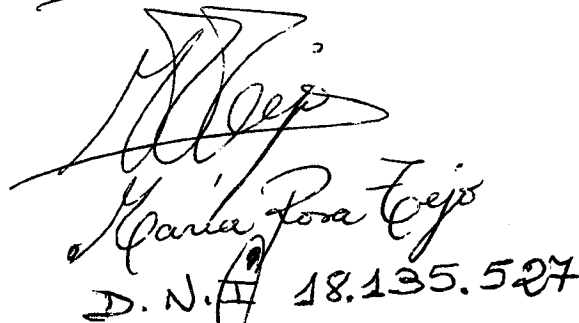 MRTejo
María Rosa Tejo
D.N.I 18.135.527